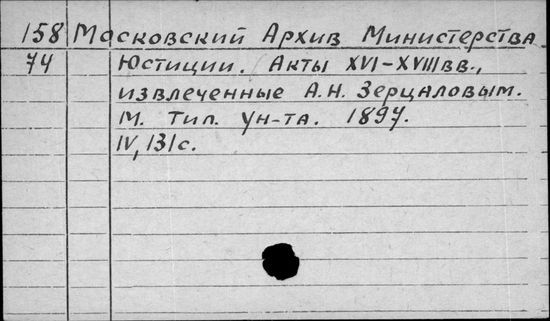 158 Московский Архив Министерства
74 Юстиции. Акты XVI-XVIII вв.,
извлеченные А.Н. Зерцаловым.
М. Тип. Ун-та. 1897.
IV, 131 с.